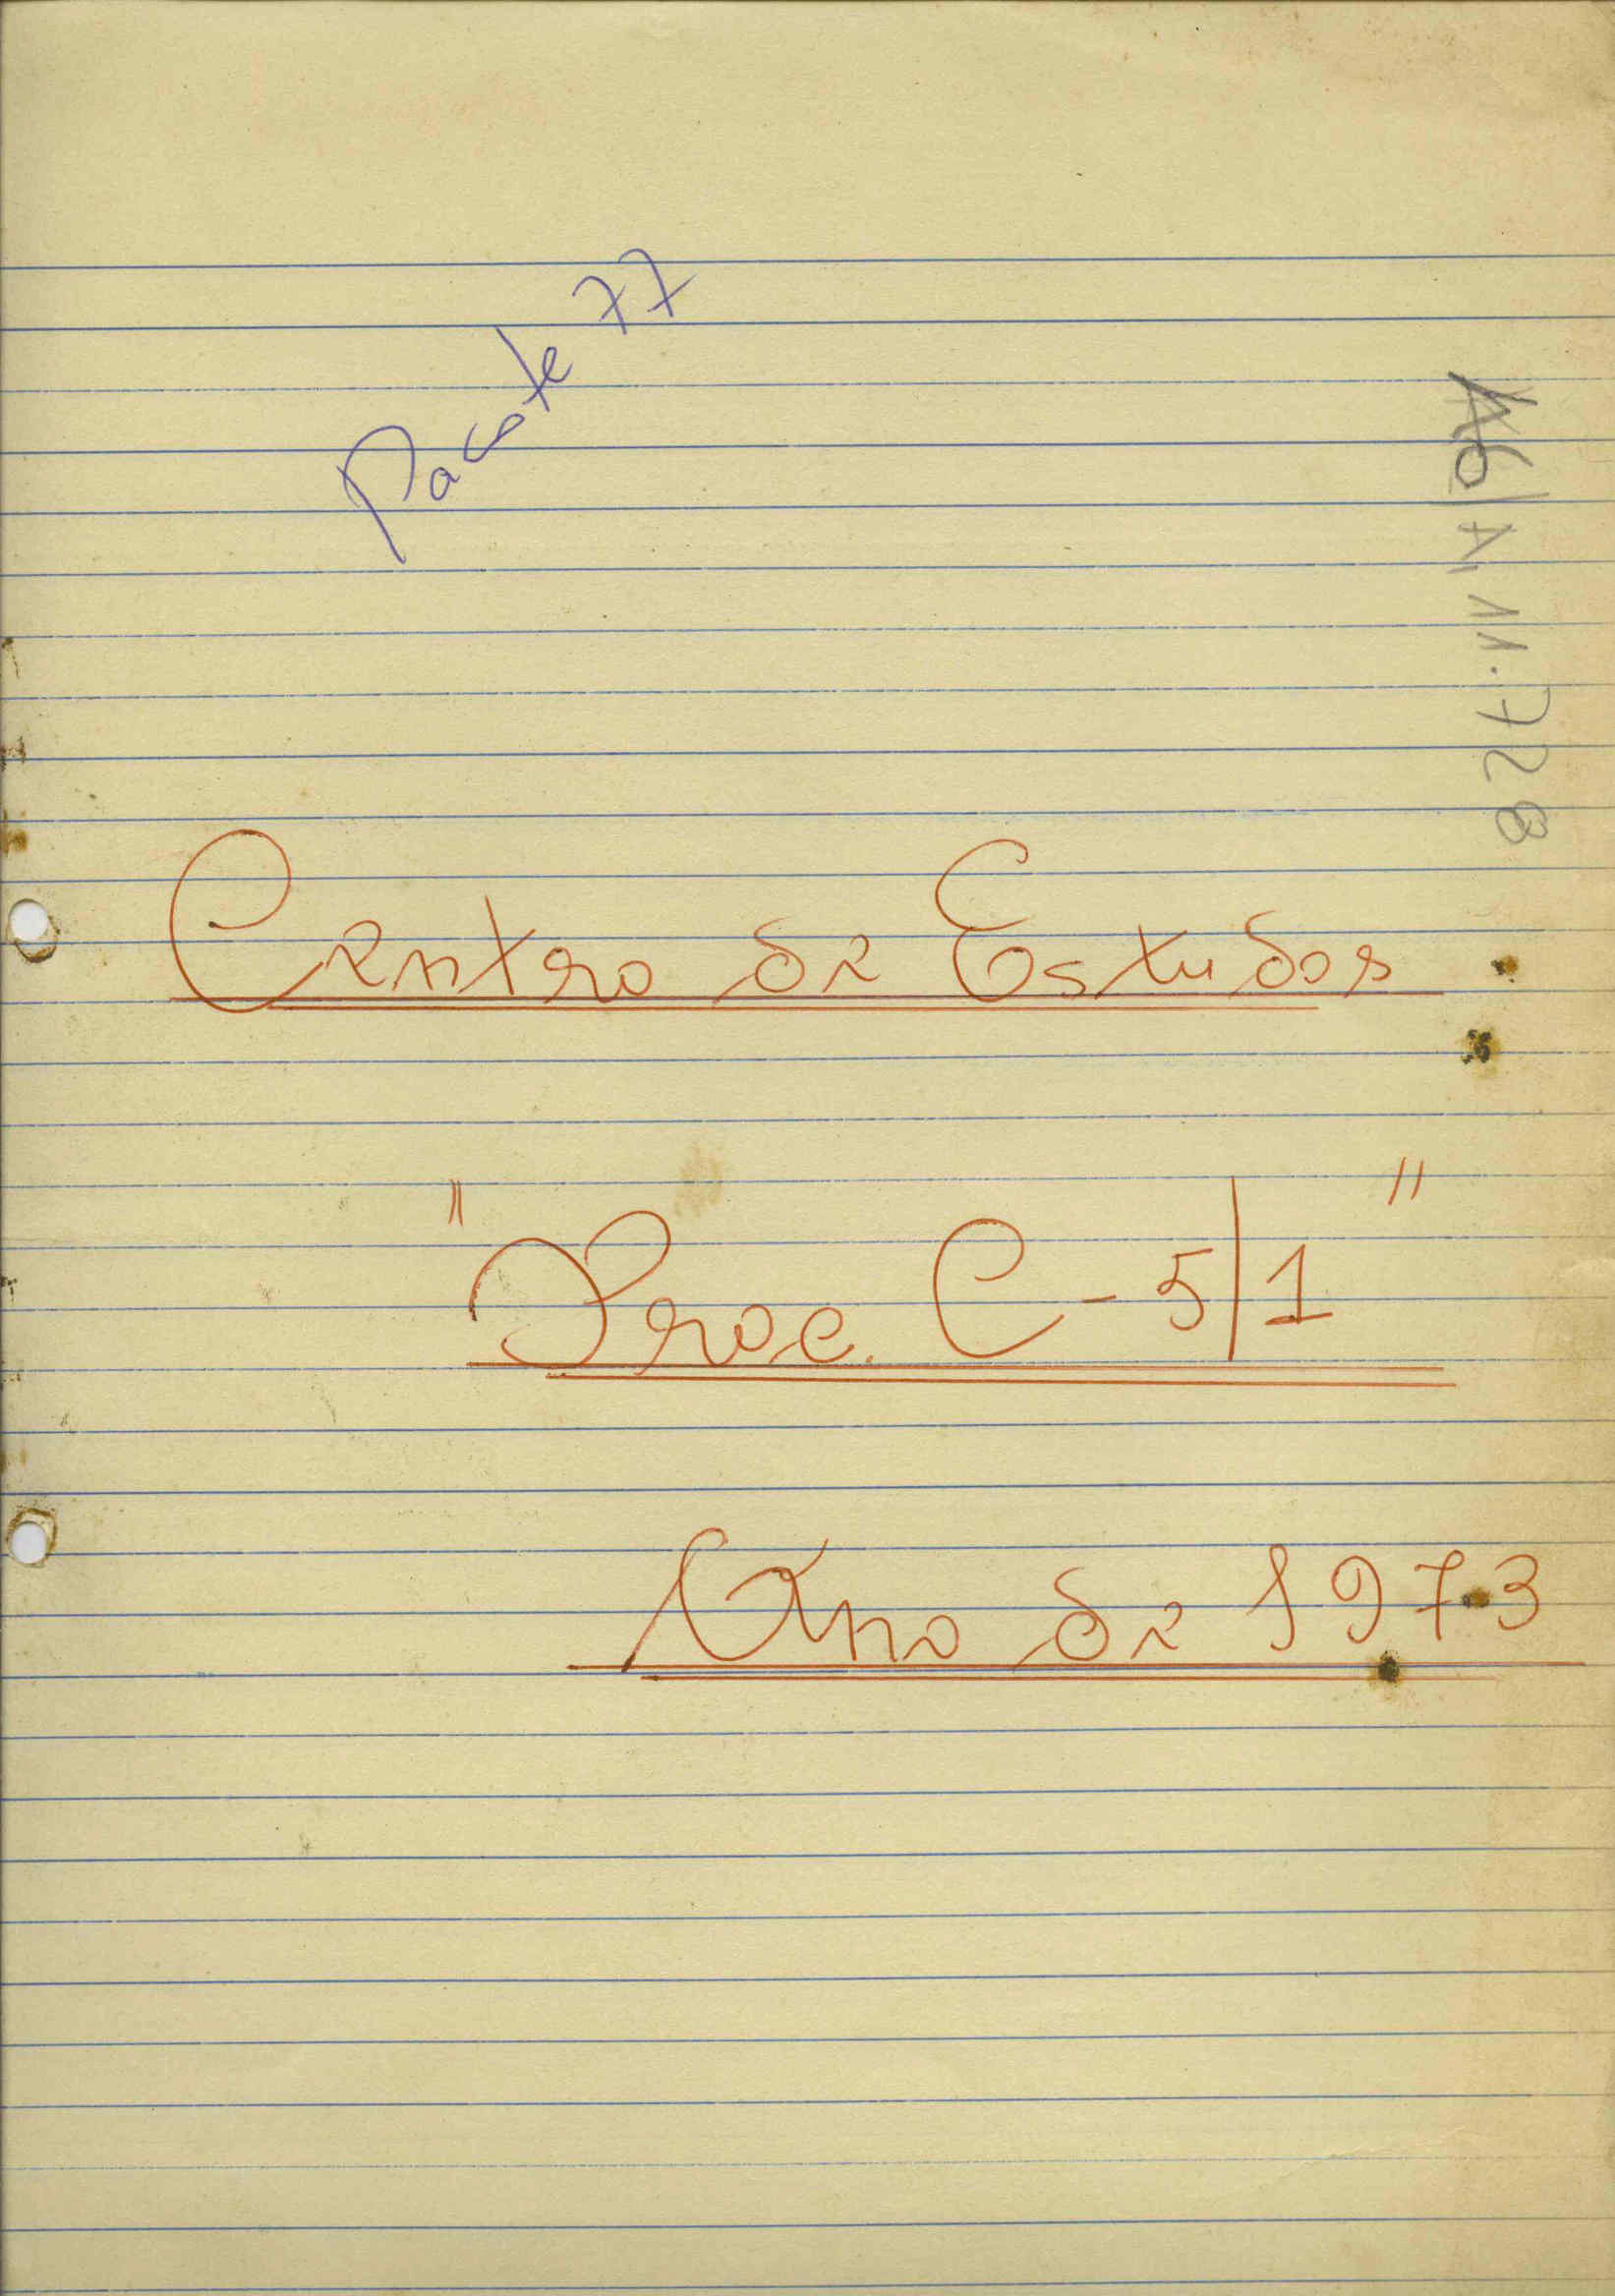 Pacote 77
A6/A 11.728
Centro de Estudos
"Proc. C-5/1"
Ano de 1973